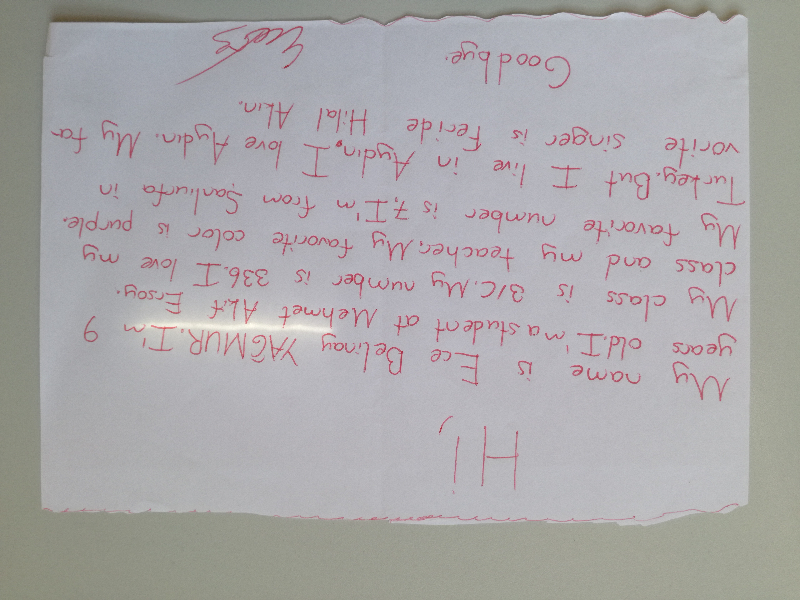 HI,
My name is Ece Belinay YAĞMUR. I'm 9
years old. I'm a student at Mehmet Akif Ersoy.
My class is 3/C. My number is 336. I love my
class and my teacher. My favorite color is purple.
My favorite number is 7. I'm from Şanlıurfa in
Turkey. But I live in Aydın. I love Aydın. My fa
vorite singer is Feride Hilal Akın.
Goodbye.